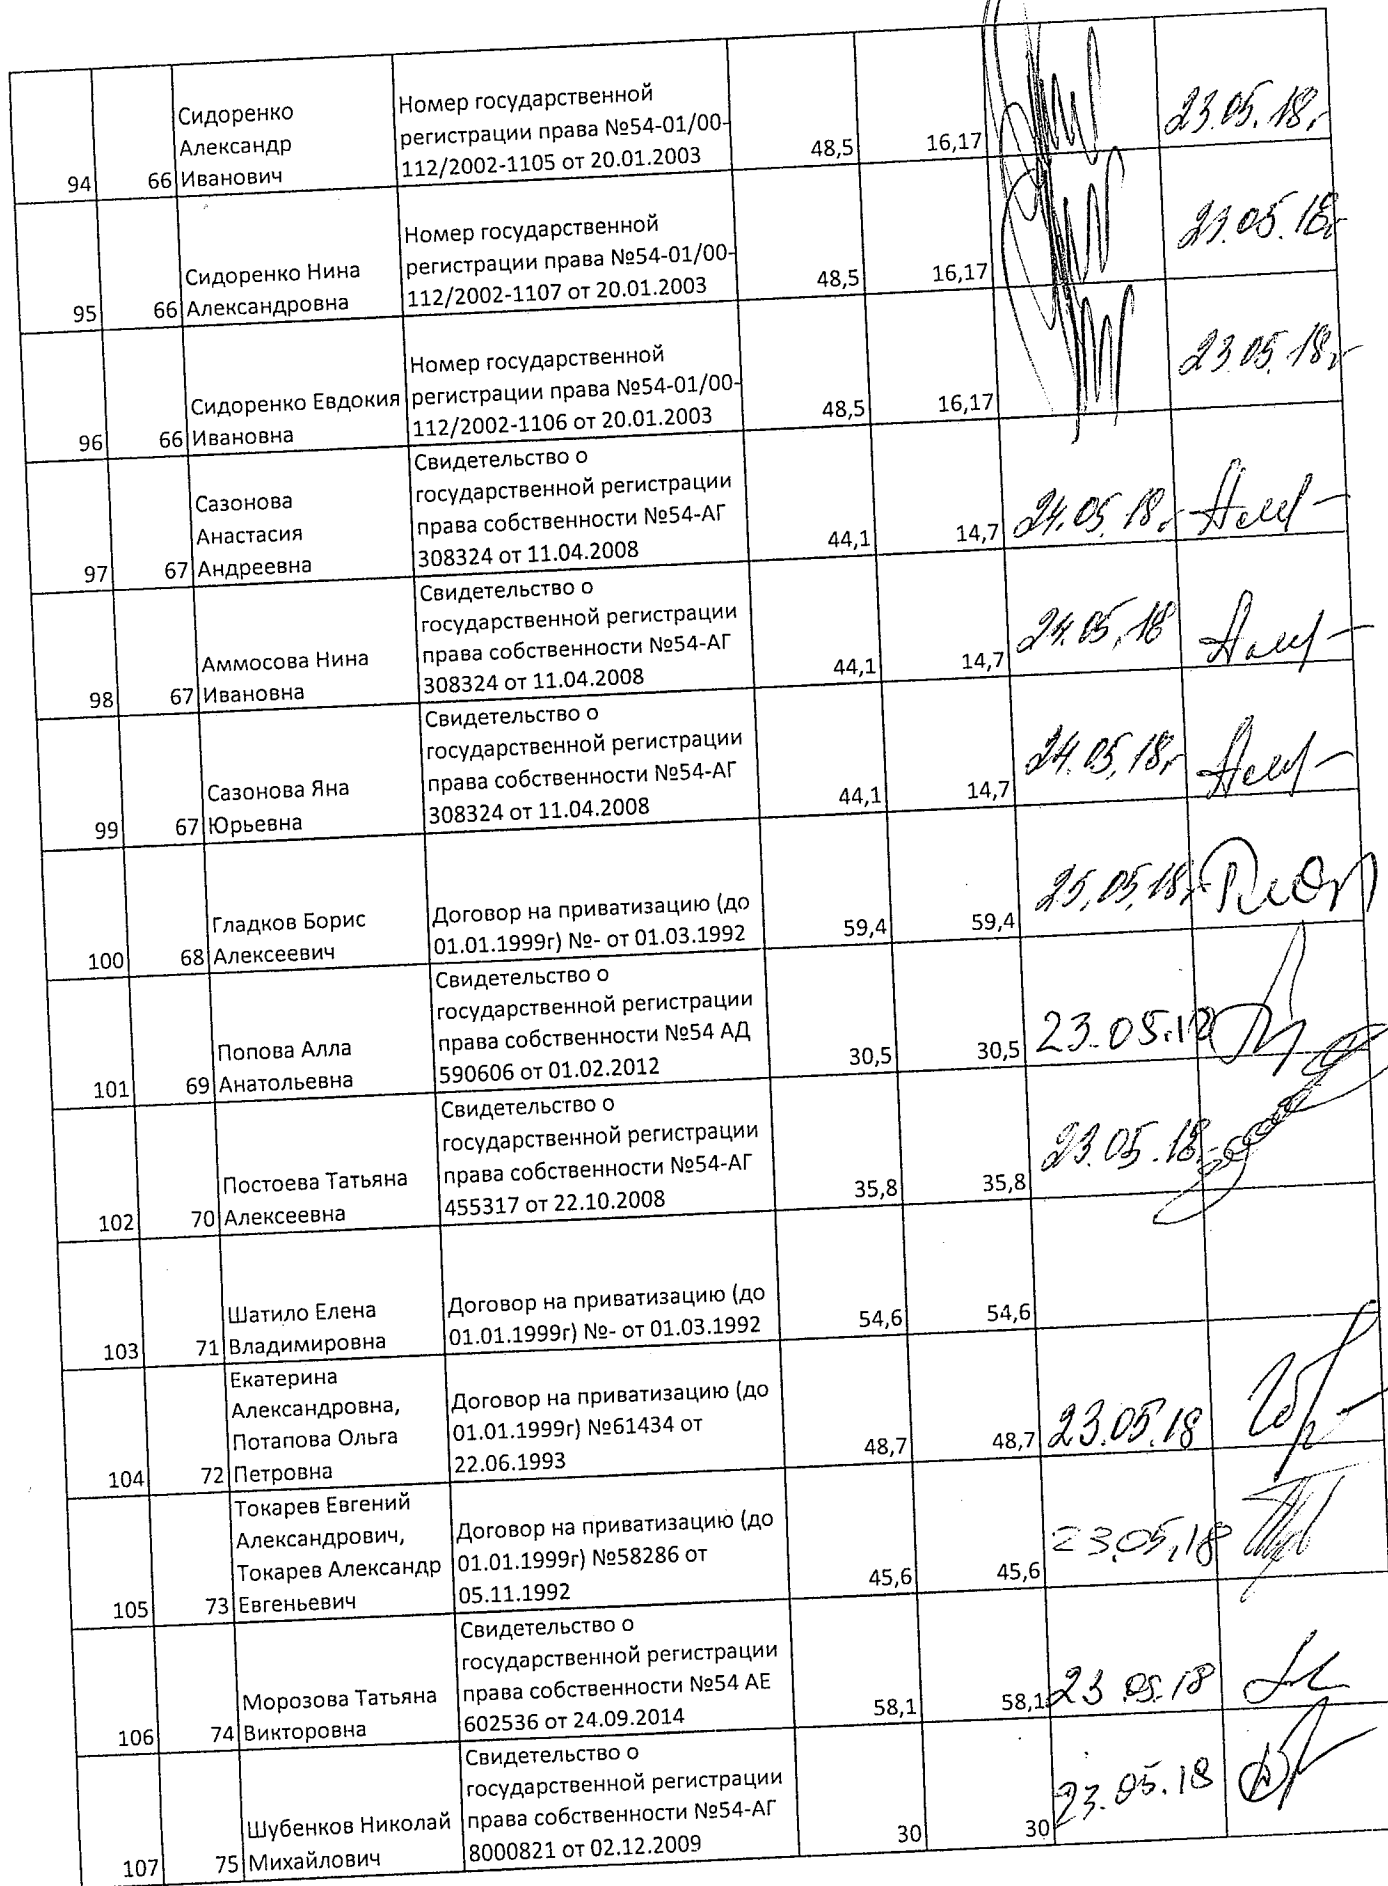 Сидоренко
Александр
94 66 Иванович
Номер государственной
регистрации права №54-01/00-
112/2002-1105 от 20.01.2003
48,5 16,17 23.05.18г
Сидоренко Нина
95 66 Александровна
Номер государственной
регистрации права №54-01/00-
112/2002-1107 от 20.01.2003
48,5 16,17 23.05.18г
Сидоренко Евдокия
96 66 Ивановна
Номер государственной
регистрации права №54-01/00-
112/2002-1106 от 20.01.2003
48,5 16,17 23.05.18г
Сазонова
Анастасия
97 67 Андреевна
Свидетельство о
государственной регистрации
права собственности №54-АГ
308324 от 11.04.2008
44,1 14,7 24.05.18г
Аммосова Нина
98 67 Ивановна
Свидетельство о
государственной регистрации
права собственности №54-АГ
308324 от 11.04.2008
44,1 14,7 24.05.18
Сазонова Яна
99 67 Юрьевна
Свидетельство о
государственной регистрации
права собственности №54-АГ
308324 от 11.04.2008
44,1 14,7 24.05.18г
Гладков Борис
100 68 Алексеевич
Договор на приватизацию (до
01.01.1999г) №- от 01.03.1992
59,4 59,4 25.05.18г
Попова Алла
101 69 Анатольевна
Свидетельство о
государственной регистрации
права собственности №54 АД
590606 от 01.02.2012
30,5 30,5 23.05.18
Постоева Татьяна
102 70 Алексеевна
Свидетельство о
государственной регистрации
права собственности №54-АГ
455317 от 22.10.2008
35,8 35,8 23.05.18
Шатило Елена
103 71 Владимировна
Договор на приватизацию (до
01.01.1999г) №- от 01.03.1992
54,6 54,6
Екатерина
Александровна,
Потапова Ольга
104 72 Петровна
Договор на приватизацию (до
01.01.1999г) №61434 от
22.06.1993
48,7 48,7 23.05.18
Токарев Евгений
Александрович,
Токарев Александр
105 73 Евгеньевич
Договор на приватизацию (до
01.01.1999г) №58286 от
05.11.1992
45,6 45,6 23.05.18
Морозова Татьяна
106 74 Викторовна
Свидетельство о
государственной регистрации
права собственности №54 АЕ
602536 от 24.09.2014
58,1 58,1 23.05.18
Шубенков Николай
107 75 Михайлович
Свидетельство о
государственной регистрации
права собственности №54-АГ
8000821 от 02.12.2009
30 30 23.05.18